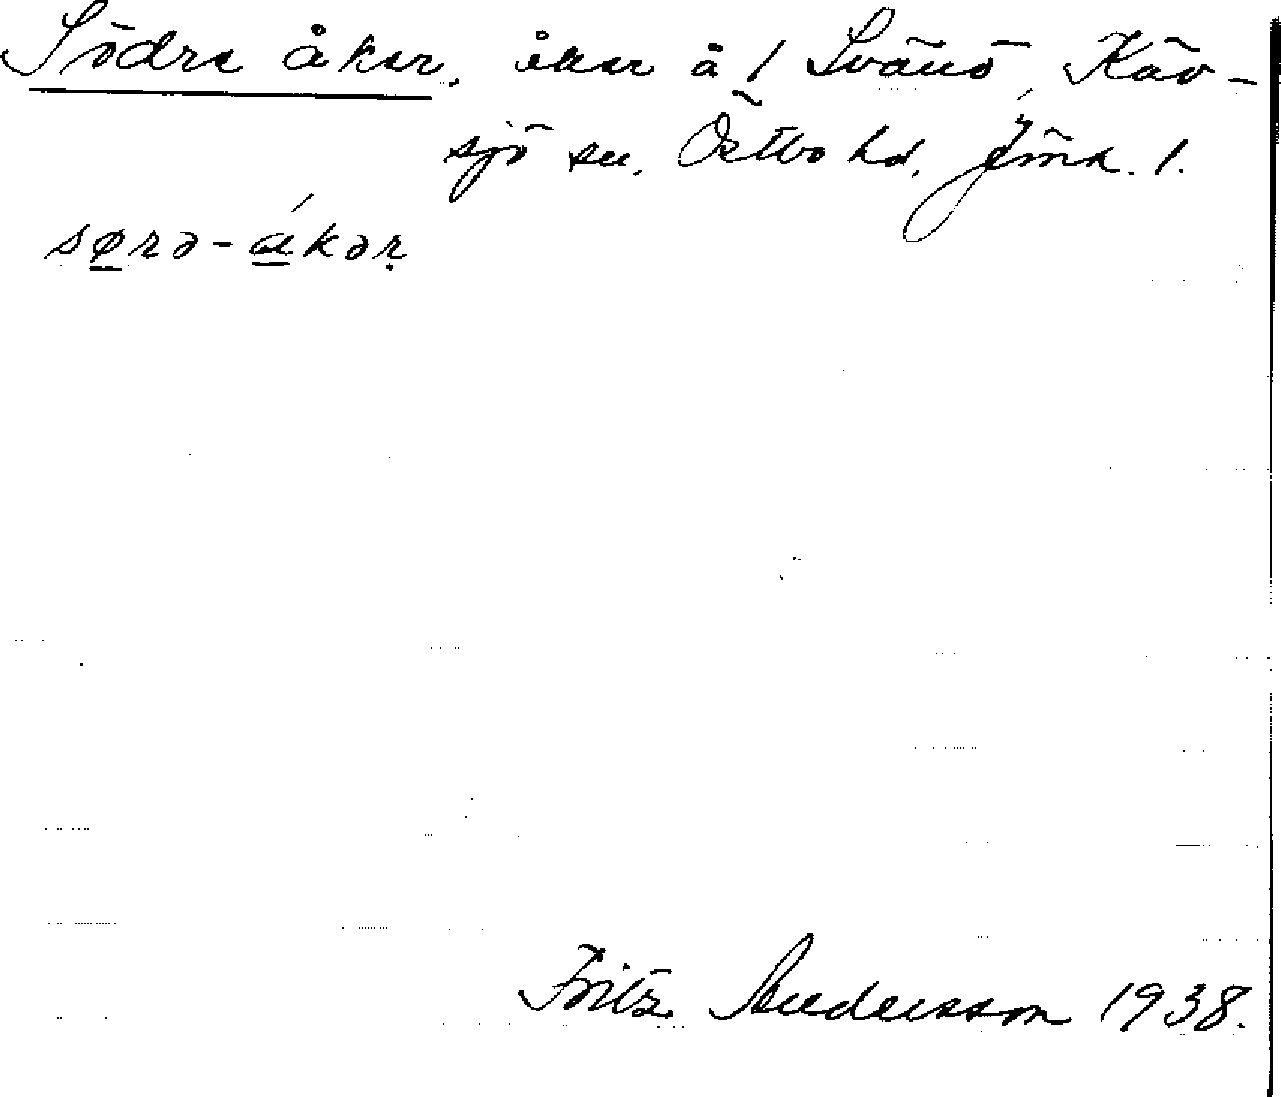 Södra åker, åker å 1 Svänö, Käv-
sjö sn, Östbo hd, Jönk. l.
sørə-ákər
Fritz Andersson 1938.